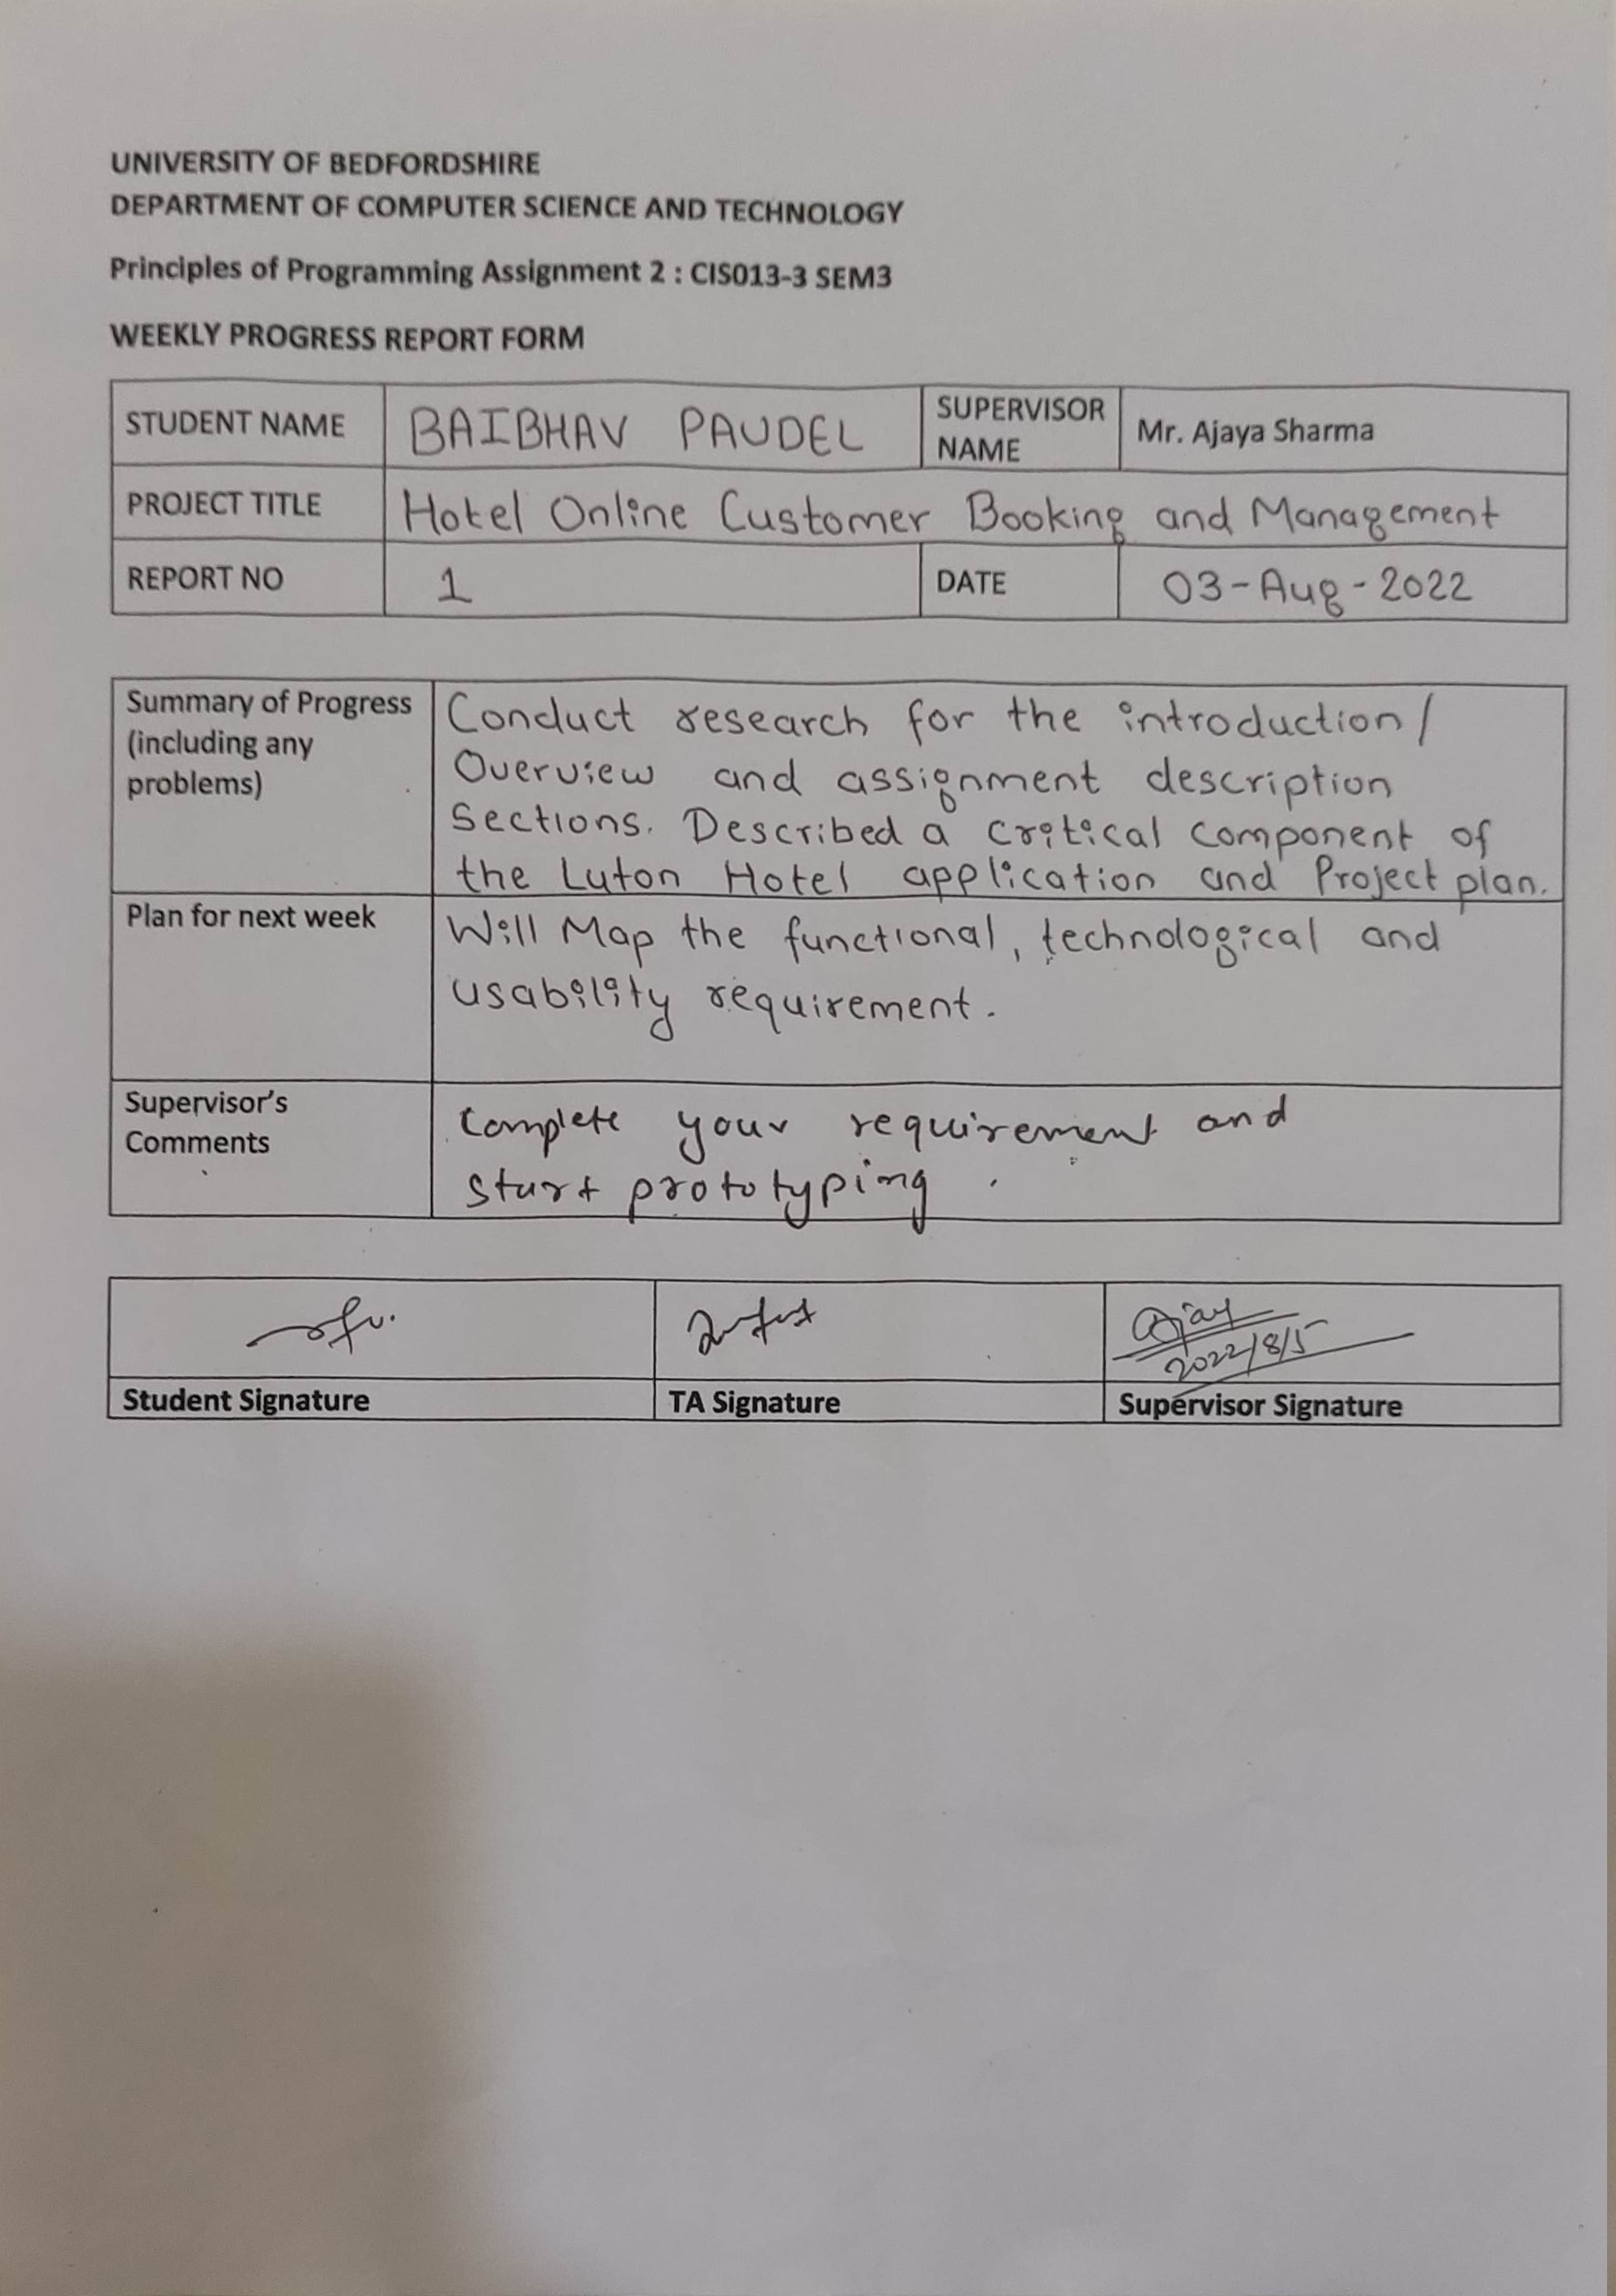 UNIVERSITY OF BEDFORDSHIRE
DEPARTMENT OF COMPUTER SCIENCE AND TECHNOLOGY
Principles of Programming Assignment 2 : CIS013-3 SEM3
WEEKLY PROGRESS REPORT FORM
STUDENT NAME
BAIBHAV PAUDEL
SUPERVISOR
NAME
Mr. Ajaya Sharma
PROJECT TITLE
Hotel Online Customer Booking and Management
REPORT NO
1
DATE
03-Aug-2022
Summary of Progress
(including any
problems)
Conduct research for the introduction/
Overview and assignment description
Sections. Described a critical component of
the Luton Hotel application and Project plan.
Plan for next week
Will Map the functional, technological and
usability requirement.
Supervisor's
Comments
Complete your requirement and
start prototyping.
Ajay
2022/8/5
Student Signature
TA Signature
Supervisor Signature